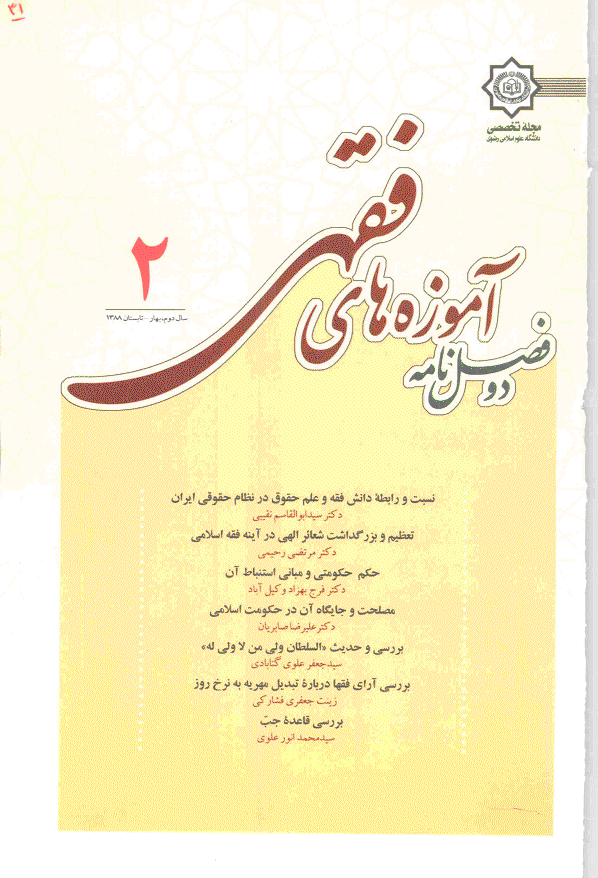 ۳۱
مجلهٔ تخصصی
دانشگاه علوم اسلامی رضوی
آموزه‌های فقهی
دو فصل‌نامه
۲
سال دوم، بهار - تابستان ۱۳۸۸
نسبت و رابطهٔ دانش فقه و علم حقوق در نظام حقوقی ایران
دکتر سیدابوالقاسم نقیبی
تعظیم و بزرگداشت شعائر الهی در آینه فقه اسلامی
دکتر مرتضی رحیمی
حکم حکومتی و مبانی استنباط آن
دکتر فرج بهزاد وکیل آباد
مصلحت و جایگاه آن در حکومت اسلامی
دکتر علیرضا صابریان
بررسی و حدیث «السلطان ولی من لا ولی له»
سیدجعفر علوی گنابادی
بررسی آرای فقها دربارهٔ تبدیل مهریه به نرخ روز
زینت جعفری فشارکی
بررسی قاعدهٔ جبّ
سیدمحمد انور علوی